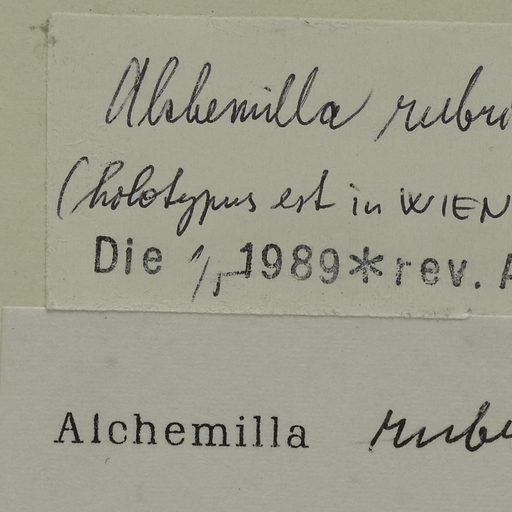 Alchemilla rubri
(holotypus est in WIEN
Die 1/5 1989*rev. A
Alchemilla rube